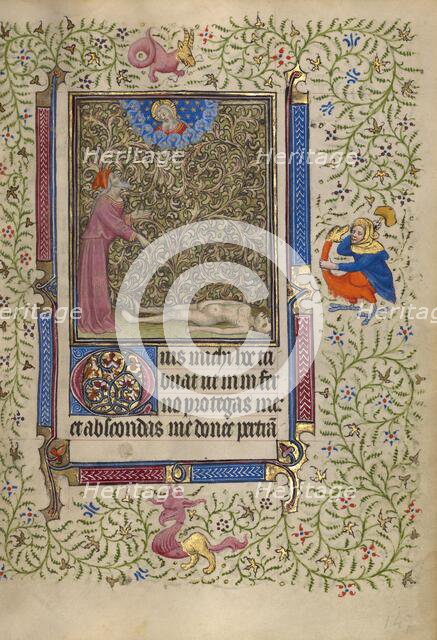 Heritage Heritage
Heritage Heritage
Heritage Heritage
Quis michi hoc tri
buat ut in infer
no protegas me.
et abscondas me donec pertran
Heritage Heritage
147